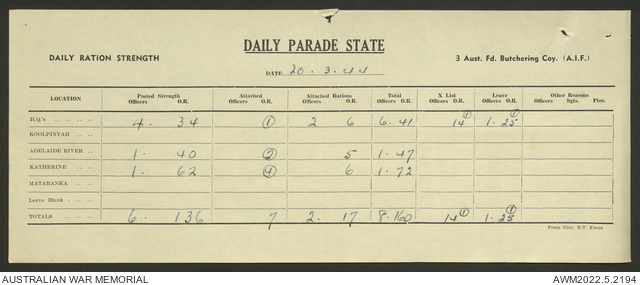 DAILY PARADE STATE
DAILY RATION STRENGTH
3 Aust. Fd. Butchering Coy. (A.I.F.)
DATE 20.3.44
LOCATION Posted Strength Officers O.R. Attached Officers O.R. Attached Rations Officers O.R. Total Officers O.R. X List Officers O.R. Leave Officers O.R. Other Reasons Officers Sgts. Ptes.
H.Q's .. .. .. .. 4. 34 1 2 6 6. 41 14 1 1. 25 1
KOOLPINYAH .. ..
ADELAIDE RIVER .. .. 1. 40 2 5 1. 47
KATHERINE .. .. 1. 62 4 6 1. 72
MATARANKA .. ..
Leave Blank .. .. ..
TOTALS .. .. .. 6. 136 7 2. 17 8. 160 14 1 1. 25 1
Press Unit, N.T. Force
AUSTRALIAN WAR MEMORIAL
AWM2022.5.2194